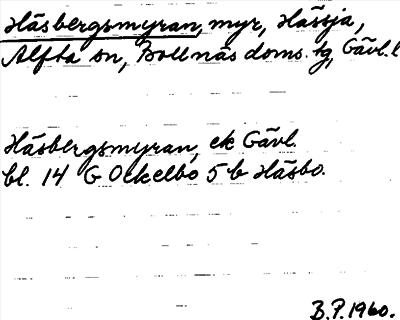 Häsbergsmyran, myr, Hässja,
Alfta sn, Bollnäs doms. tg, Gävl. l
Häsbergsmyran, ek Gävl.
bl. 14 G Ockelbo 5 b Häsbo.
B.P. 1960.